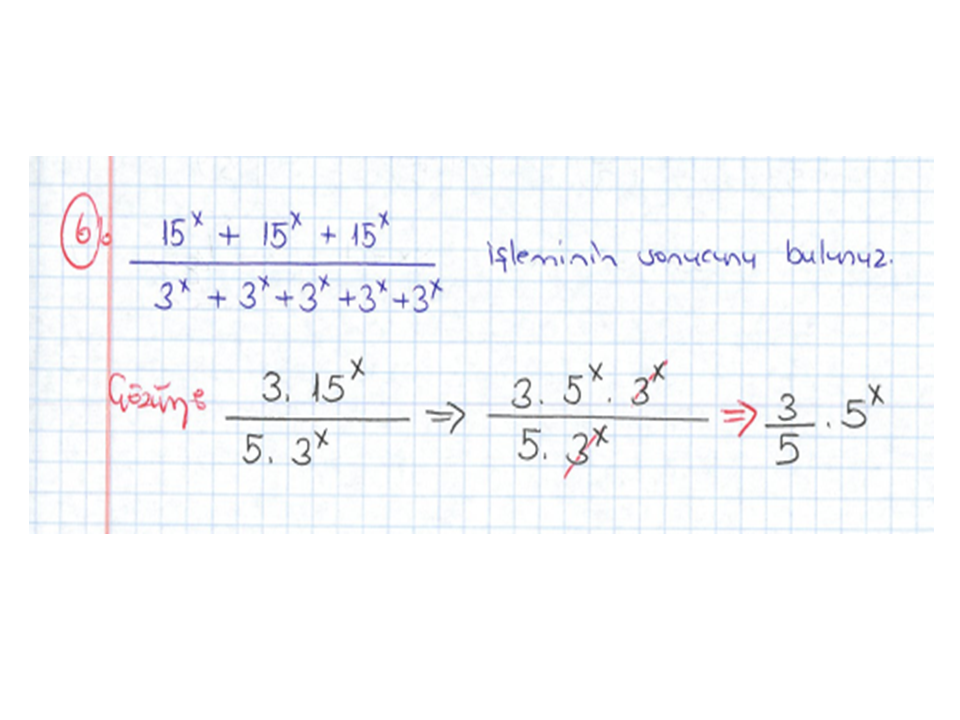 6) 15ˣ + 15ˣ + 15ˣ / 3ˣ + 3ˣ + 3ˣ + 3ˣ + 3ˣ işleminin sonucunu bulunuz.
Çözüm: 3. 15ˣ / 5. 3ˣ ⇒ 3. 5ˣ. 3ˣ / 5. 3ˣ ⇒ 3/5 . 5ˣ